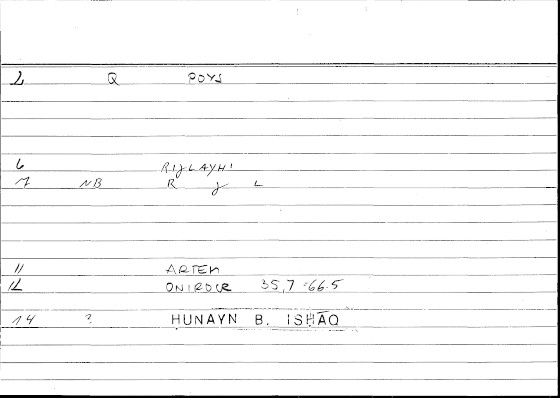 2 Q ΠΟΥΣ
6 RIJLAYHI
7 NB R J L
11 ARTEM
12 ONIROCR 35,7 - 66.5
14 ? HUNAYN B. ISHĀQ